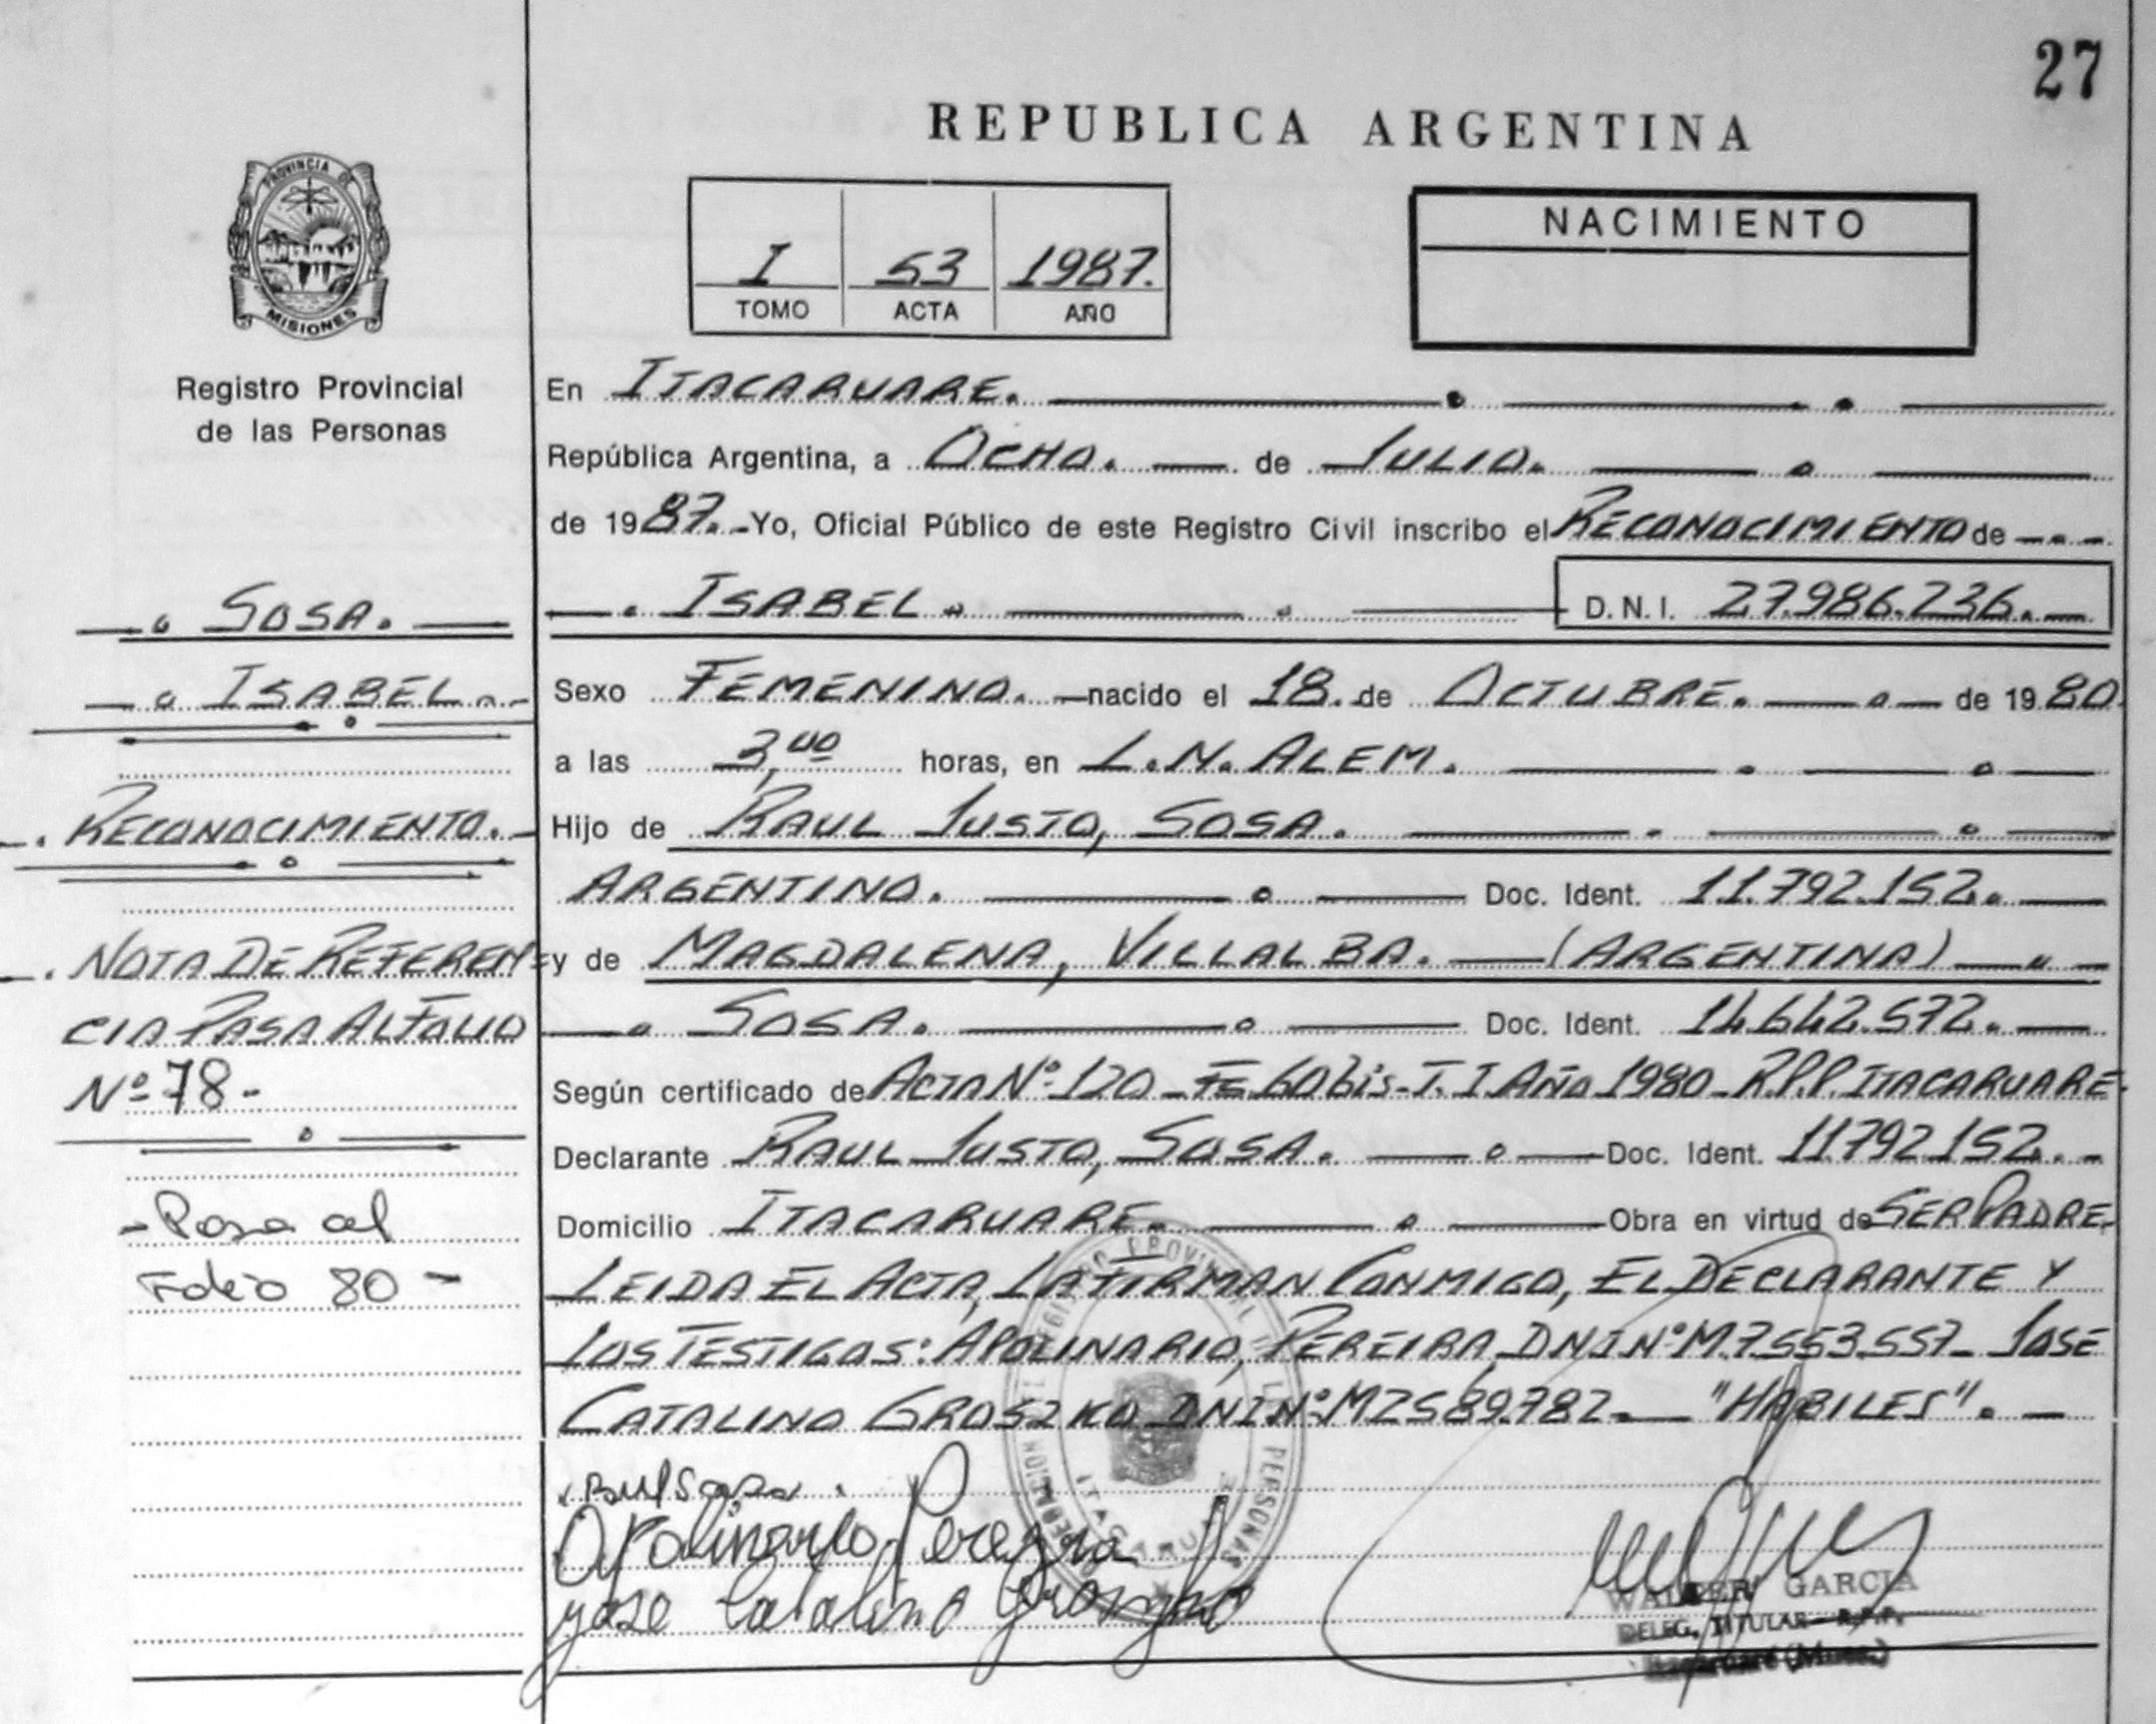 27
REPUBLICA ARGENTINA
PROVINCIA DE
MISIONES
Registro Provincial
de las Personas
I 53 1987.
TOMO ACTA AÑO
NACIMIENTO
En ITACARUARE.
República Argentina, a OCHO. de JULIO.
de 1987. Yo, Oficial Público de este Registro Civil inscribo el RECONOCIMIENTO de
ISABEL. D.N.I. 27.986.236.
SOSA.
ISABEL.
RECONOCIMIENTO.
NOTA DE REFEREN
CIA PASA AL FOLIO
Nº 78-
- Pasa al
Folio 80 -
Sexo FEMENINO. nacido el 18. de OCTUBRE. de 1980
a las 3,00 horas, en L.N. ALEM.
Hijo de RAUL JUSTO, SOSA.
ARGENTINO. Doc. Ident. 11.792.152.
y de MAGDALENA, VILLALBA. (ARGENTINA)
SOSA. Doc. Ident. 14.642.572.
Según certificado de ACTA Nº 120 - Fº 60 bis - T. I AÑO 1980 - R.P.P. ITACARUARE-
Declarante RAUL JUSTO, SOSA. Doc. Ident. 11792152.
Domicilio ITACARUARE. Obra en virtud de SER PADRE.
LEIDA EL ACTA, LA FIRMAN CONMIGO, EL DECLARANTE Y
LOS TESTIGOS: APOLINARIO, PEREIRA, DNI Nº M.7553.557- JOSE
CATALINO GROSZKO DNI Nº M7589.782. "HABILES".
Raul Sosa
Apolinario Pereyra
Jose Catalino Groszko
WALTER GARCIA
DELEG. TITULAR - R.P.P.
Itacaruaré (Mnes.)